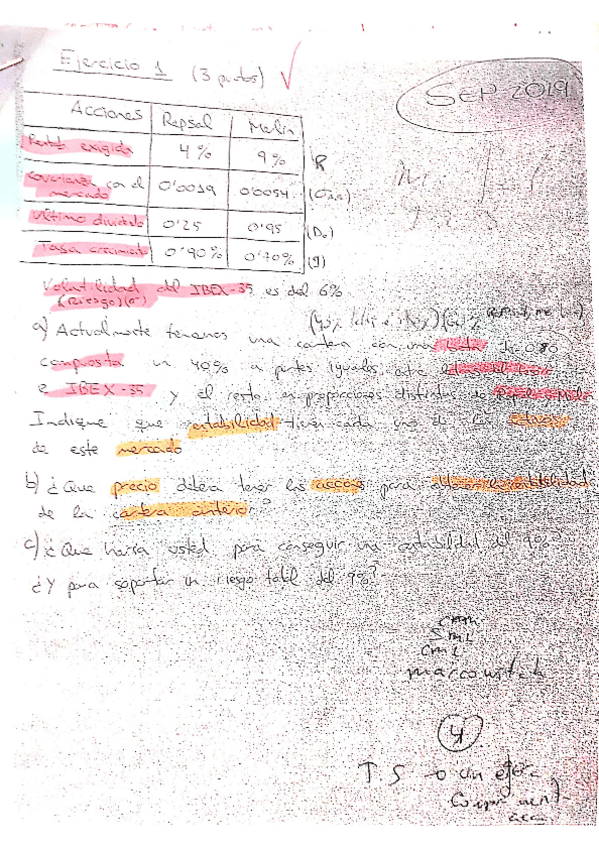 Ejercicio 1 (3 puntos)
SEP 2019
Acciones Repsol Melia
Rentab exigida 4% 9% R
Covarianza con el mercado 0'0019 0'0054
Ultimo dividendo 0'25 0'95 (D₀)
Tasa crecimiento 0'90% 0'70% (g)
Volatilidad del IBEX-35 es del 6%
(Riesgo)(σ)
a) Actualmente tenemos una cartera con una beta de 0'80
compuesta un 40% a partes iguales entre
e IBEX-35 y el resto en proporciones distintas de Repsol y Melia
Indique que rentabilidad tienen cada uno de los
de este mercado
b) ¿Que precio debera tener las acciones para
de la cartera anterior?
c) ¿Que haria usted para conseguir una rentabilidad del 9%?
¿Y para soportar un riesgo total del 9%?
SML
CML
marcowitch
4
TS o un